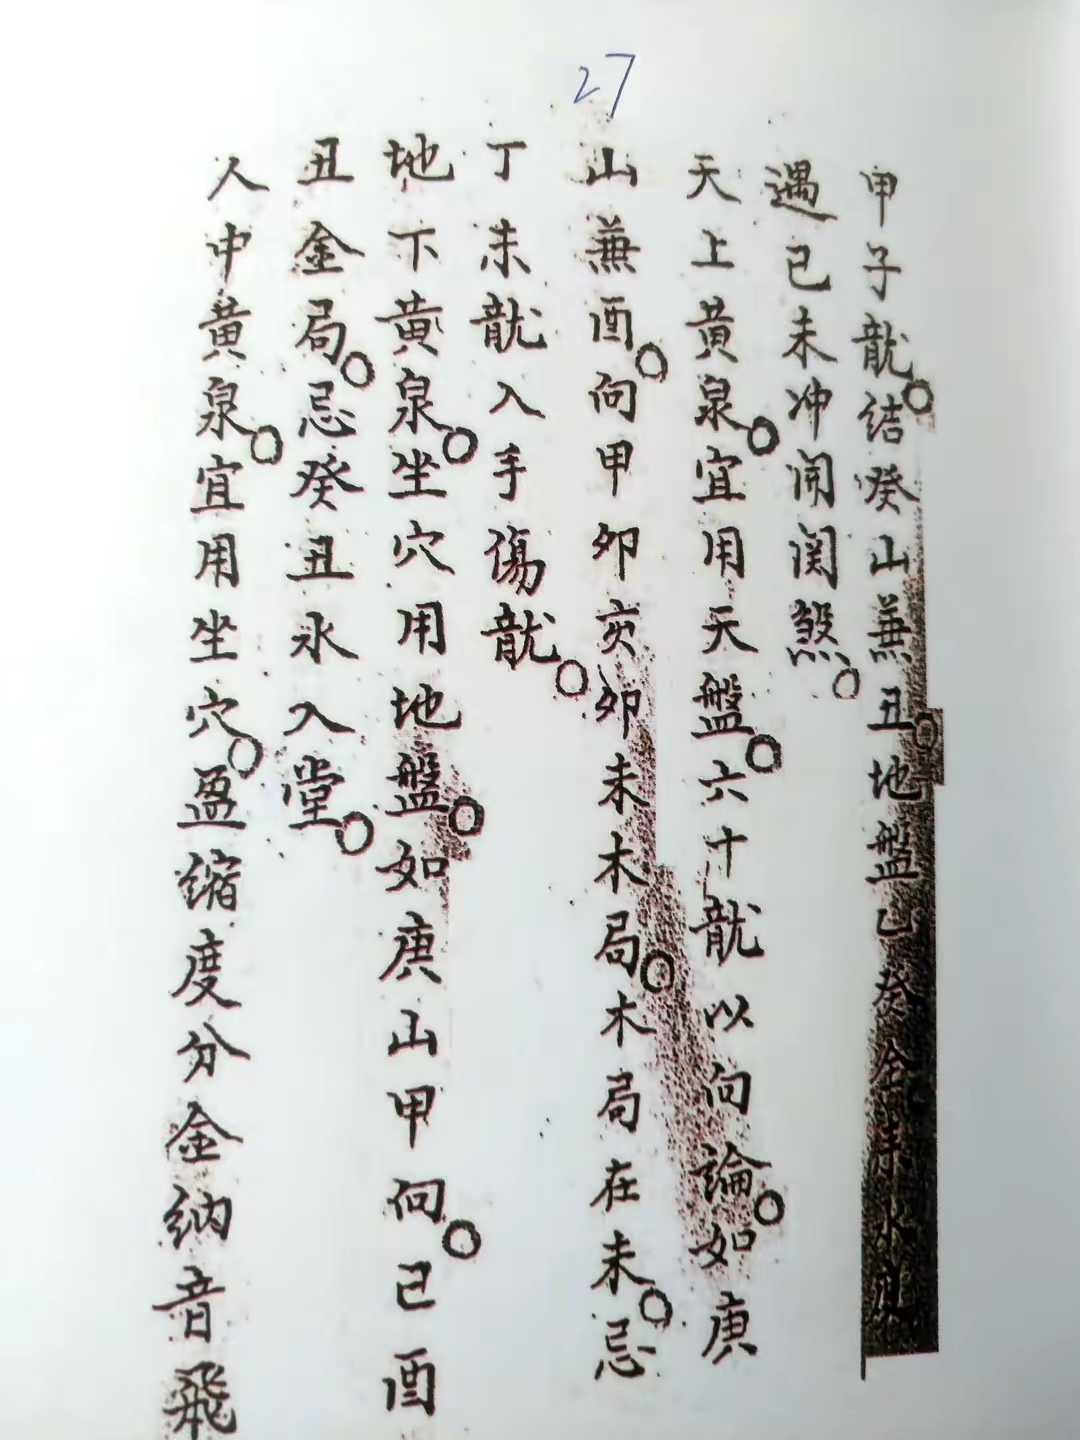 27
甲子龍。結癸山兼丑。地盤乙癸金未水見
遇己未冲開関煞。
天上黄泉。宜用天盤。六十龍以向論。如庚
山兼酉。向甲卯亥卯未木局。木局在未。忌
丁未龍入手傷龍。
地下黄泉。坐穴用地盤。如庚山甲向。己酉
丑金局。忌癸丑水入堂。
人中黄泉。宜用坐穴。盈縮度分金納音飛